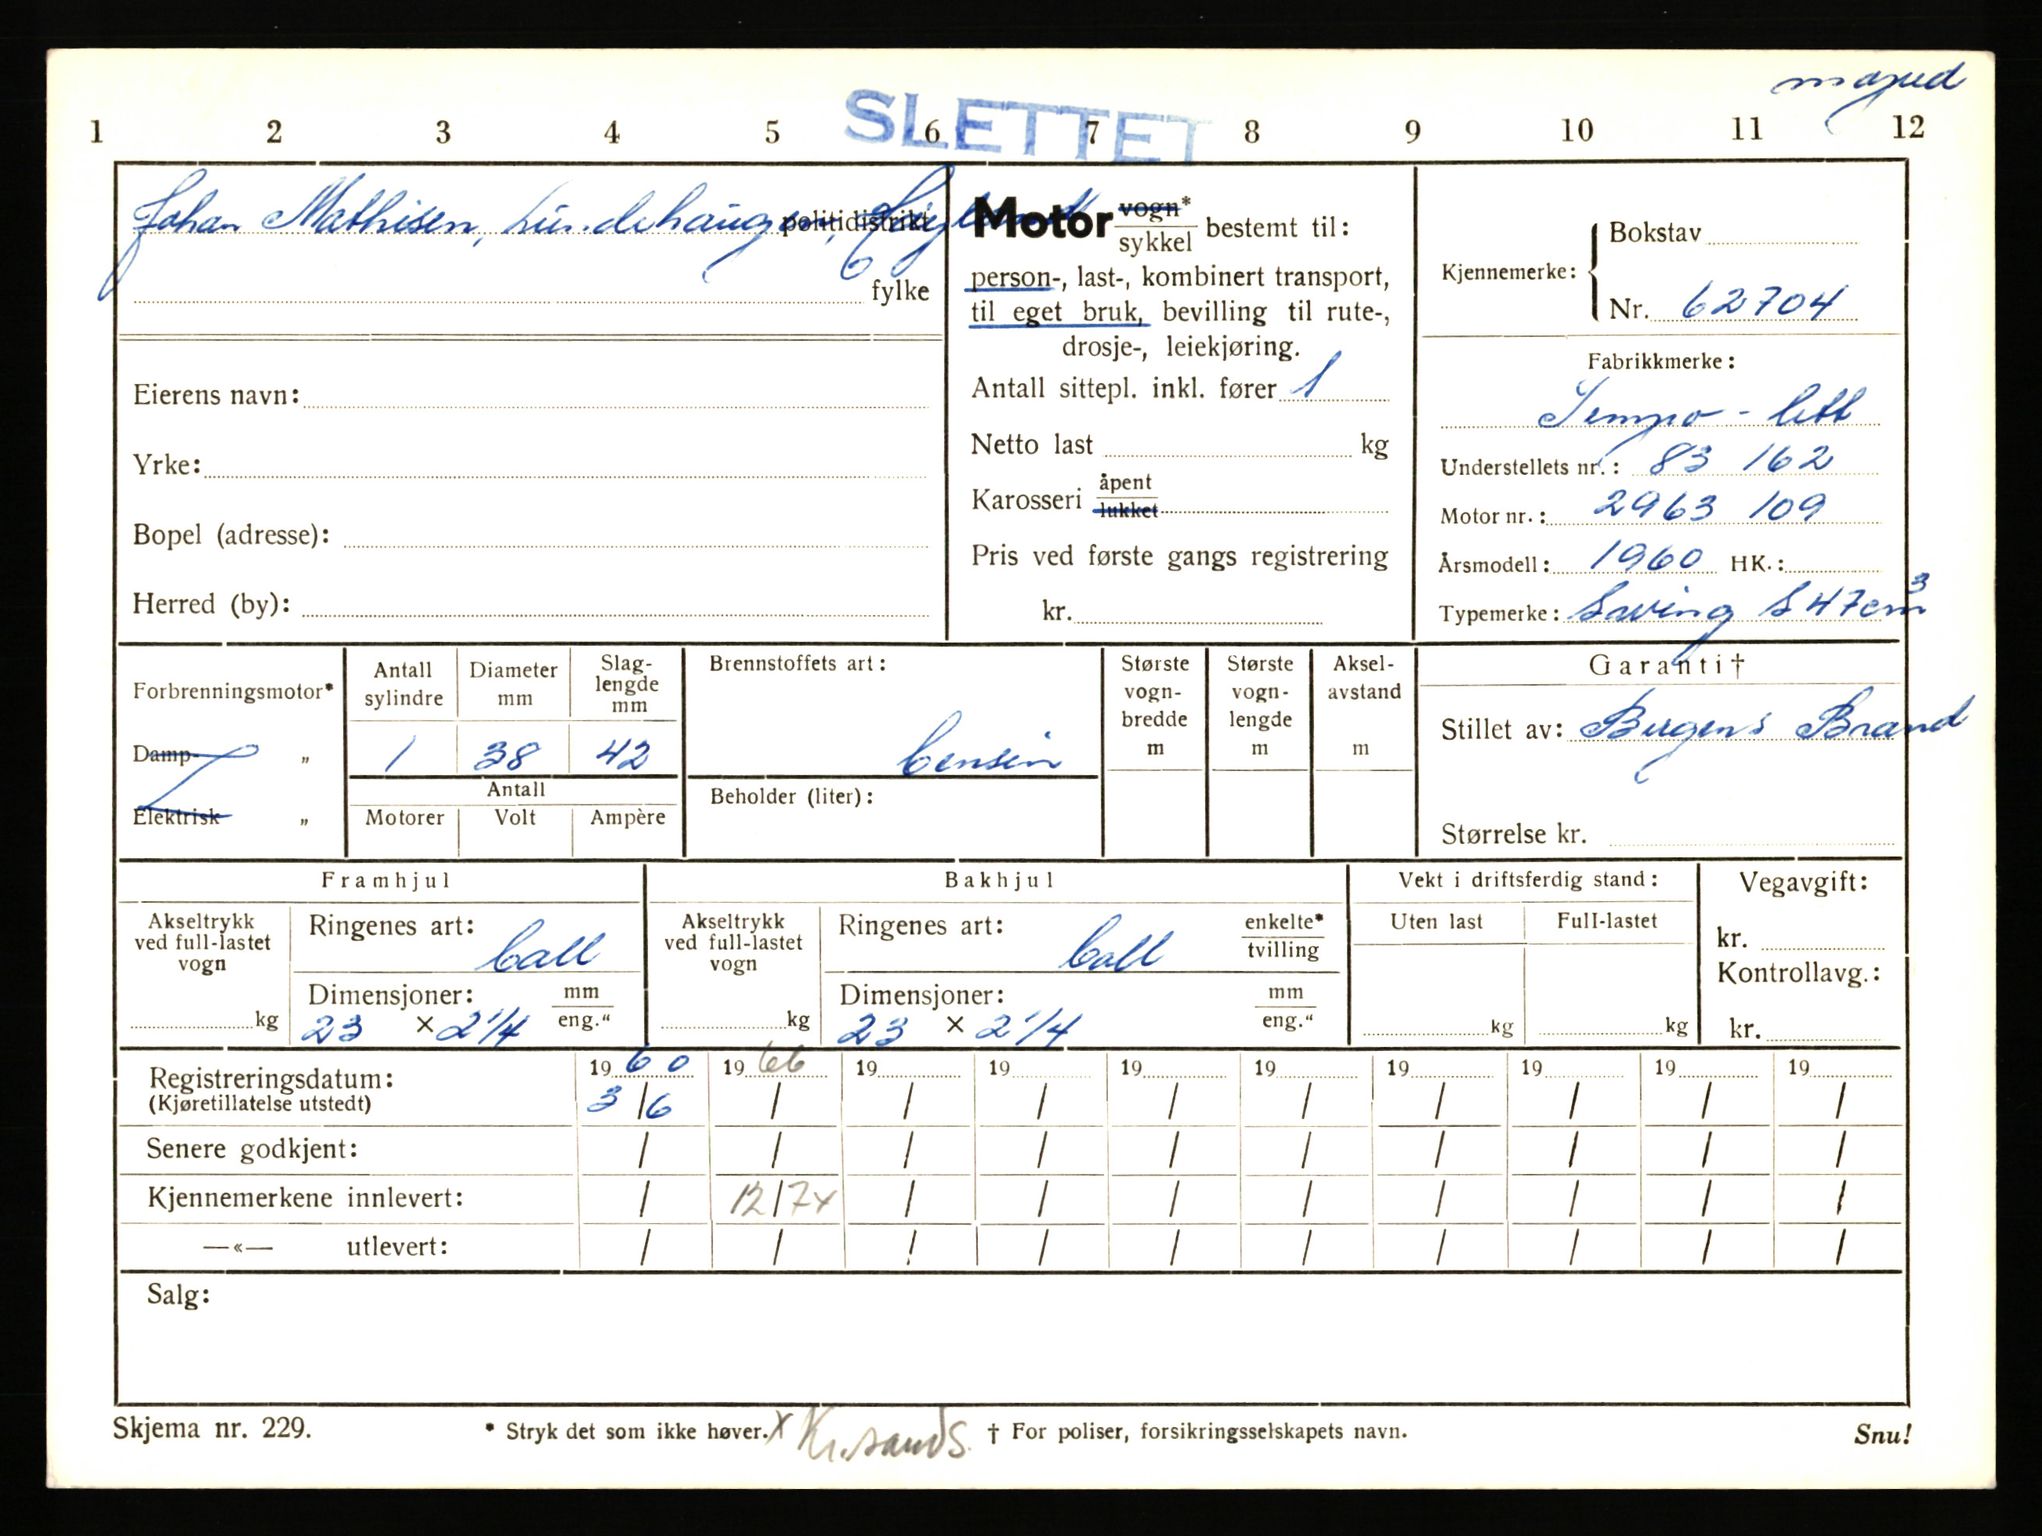 moped
SLETTET
1 2 3 4 5 6 7 8 9 10 11 12
Johan Mathisen, Lundehaugen, Høyland
politidistrikt
fylke
Eierens navn:
Yrke:
Bopel (adresse):
Herred (by):
Motor vogn* sykkel bestemt til:
person-, last-, kombinert transport,
til eget bruk, bevilling til rute-,
drosje-, leiekjøring.
Antall sittepl. inkl. fører 1
Netto last kg
Karosseri åpent lukket
Pris ved første gangs registrering
kr.
Kjennemerke: Bokstav
Nr. 62704
Fabrikkmerke:
Tempo - lett
Understellets nr.: 83 162
Motor nr.: 2963 109
Årsmodell: 1960 HK.:
Typemerke: Swing S 47cm³
Forbrenningsmotor*
Damp- „
Elektrisk „
Antall sylindre
1
Diameter mm
38
Slaglengde mm
42
Antall
Motorer Volt Ampère
Brennstoffets art:
bensin
Beholder (liter):
Største vogn-bredde m
Største vogn-lengde m
Aksel-avstand m
Garanti†
Stillet av: Bergens Brand
Størrelse kr.
Framhjul
Akseltrykk ved full-lastet vogn
kg
Ringenes art: ball
Dimensjoner: mm eng."
23 × 2 1/4
Bakhjul
Akseltrykk ved full-lastet vogn
kg
Ringenes art: ball
enkelte* tvilling
Dimensjoner: mm eng."
23 × 2 1/4
Vekt i driftsferdig stand:
Uten last Full-lastet
kg kg
Vegavgift:
kr.
Kontrollavg.:
kr.
Registreringsdatum: 1960 1966 19 19 19 19 19 19 19 19
(Kjøretillatelse utstedt) 3/6 / / / / / / / / /
Senere godkjent: / / / / / / / / / /
Kjennemerkene innlevert: / 12/7x / / / / / / / /
—«— utlevert: / / / / / / / / / /
Salg:
Skjema nr. 229. * Stryk det som ikke høver. x Kr.sands. † For poliser, forsikringsselskapets navn. Snu!